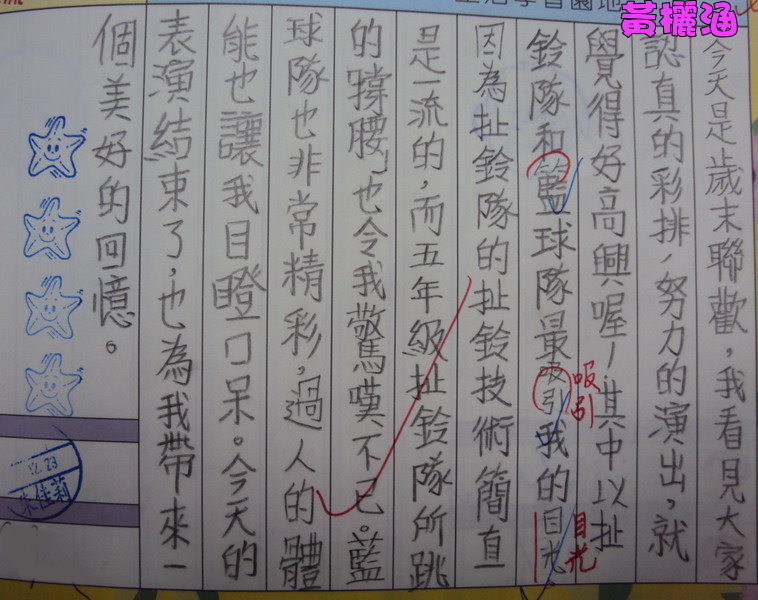 學習園地
今天是歲末聯歡，我看見大家
認真的彩排，努力的演出，就
覺得好高興喔！其中以扯
鈴隊和籃球隊最吸引我的目光。
吸引
目光
因為扯鈴隊的扯鈴技術簡直
是一流的，而五年級扯鈴隊所跳
的撐腰」也令我驚嘆不已。藍
球隊也非常精彩，過人的體
能也讓我目瞪口呆。今天的
表演結束了，也為我帶來一
個美好的回憶。
12.23
佳莉